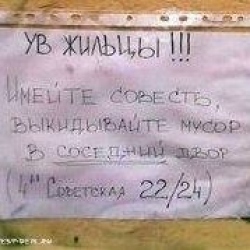 УВ ЖИЛЬЦЫ!!!
ИМЕЙТЕ СОВЕСТЬ,
ВЫКИДЫВАЙТЕ МУСОР
В СОСЕДНИЙ ДВОР
(4ая СОВЕТСКАЯ 22/24)